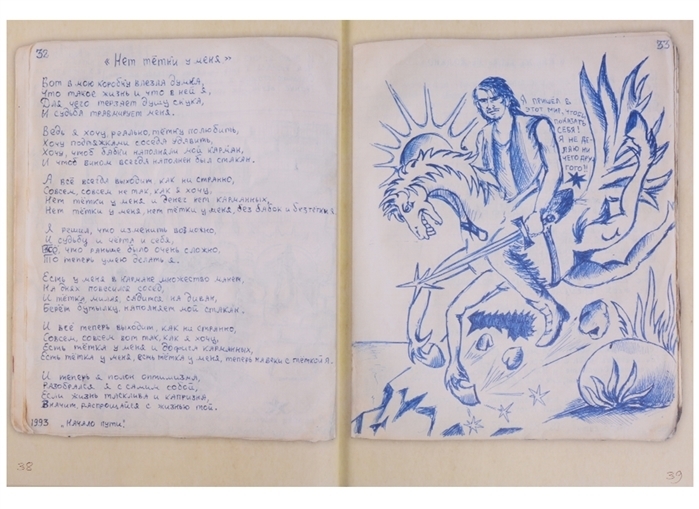 32
«Нет тётки у меня»
Вот в мою коробку влезла думка,
Что такое жизнь и что в ней я,
Для чего терзает душу скука,
И судьба травмирует меня.
Ведь я хочу, реально, тётку полюбить,
Хочу подтяжками соседа удавить,
Хочу, чтоб бабки наполняли мой карман,
И чтоб вином всегда наполнен был стакан.
А всё всегда выходит, как ни странно,
Совсем, совсем не так, как я хочу,
Нет тётки у меня и денег нет карманных,
Нет тётки у меня, нет тётки у меня, без бабок и без тётки я.
Я решил, что изменить возможно,
И судьбу и чёрта и себя,
что раньше было очень сложно,
То теперь умею делать я.
Есть у меня в кармане множество монет,
На днях повесился сосед,
И тётка милая, садится на диван,
Берём бутылку, наполняем мой стакан.
И всё теперь выходит, как ни странно,
Совсем, совсем вот так, как я хочу,
Есть тётка у меня и до карманных,
Есть тётка у меня, есть тётка у меня, теперь с тёткой я.
И теперь я полон оптимизма,
Разобрался я с самим собой,
Если жизнь тосклива и капризна,
Значит, распрощайся с жизнью той.
1993 „Начало пути"
33
Я пришёл в
этот мир, чтобы
показать
себя!
Я не де-
лаю ни
чего дру
гого!!
38
39